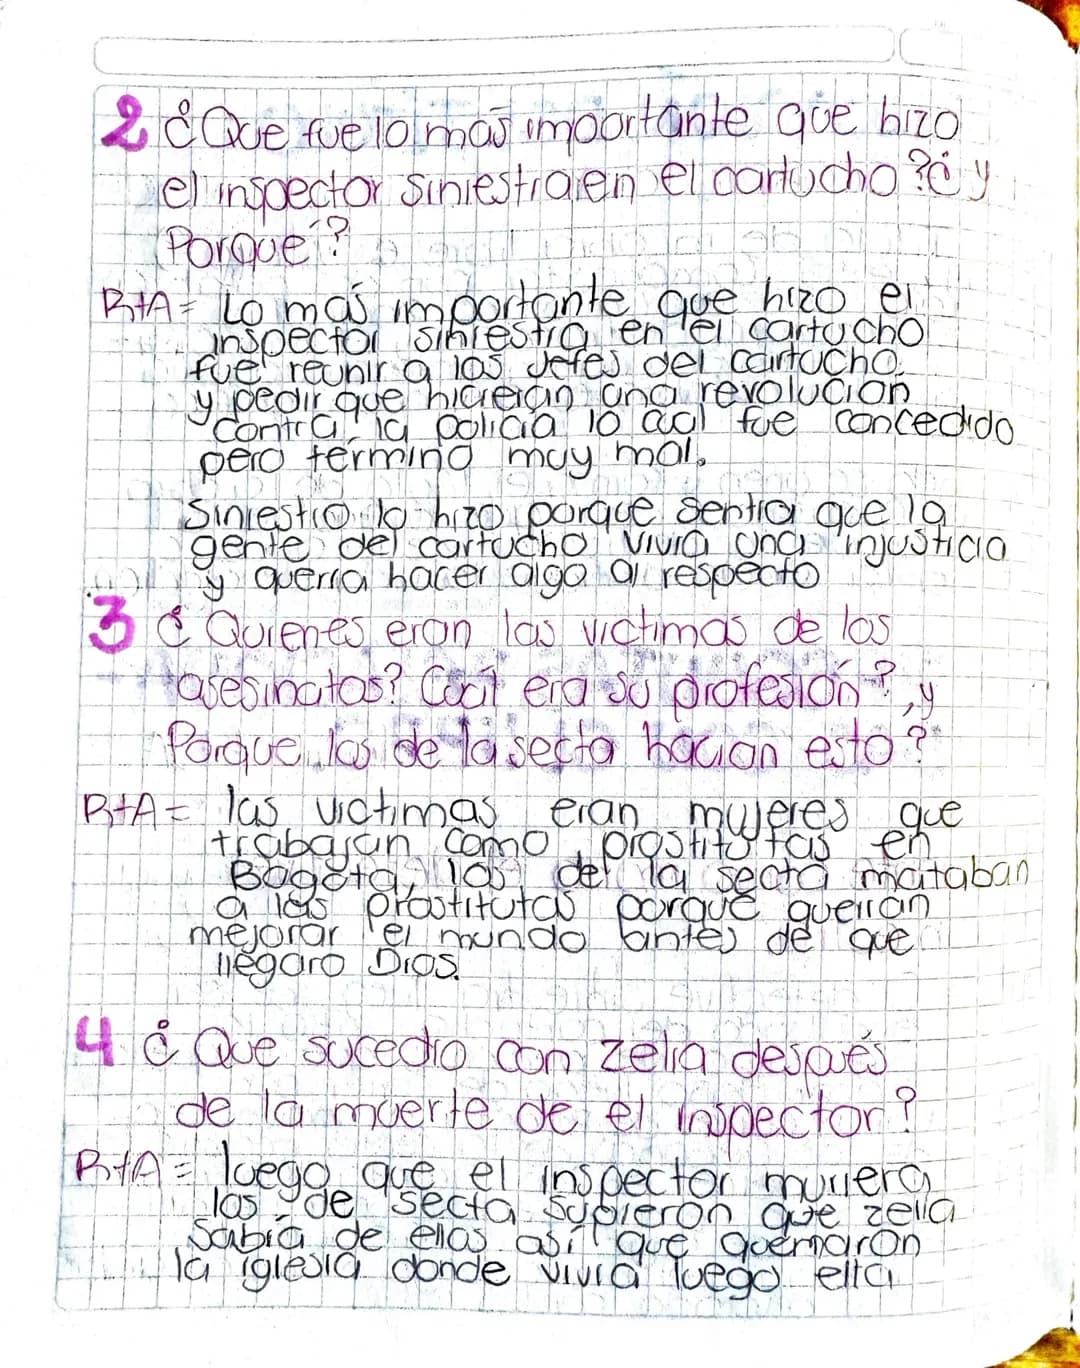 2 ¿Que fue lo más importante que hizo
el inspector siniestra en el cartucho? ¿y
Porque?
RtA= Lo más importante que hizo el
inspector siniestra en el cartucho
fue reunir a los Jefes del cartucho
y pedir que hicieran una revolucion
contra la policia lo cual fue concedido
pero termino muy mal.
Siniestro lo hizo porque sentia que la
gente del cartucho vivia una injusticia
y queria hacer algo al respecto
3 ¿Quienes eran las victimas de los
asesinatos? Cuál era su profesión?, y
Porque los de la secta hacian esto?
RtA= las victimas eran mujeres que
trabajan como prostitutas en
Bogota, los de la secta mataban
a las prostitutas porque querian
mejorar el mundo antes de que
llegara Dios.
4 ¿Que sucedio con zelia después
de la muerte de el inspector?
RtA= luego que el inspector muriera
los de secta supieron que zelia
Sabia de ellos así que quemaron
la iglesia donde vivia luego ella